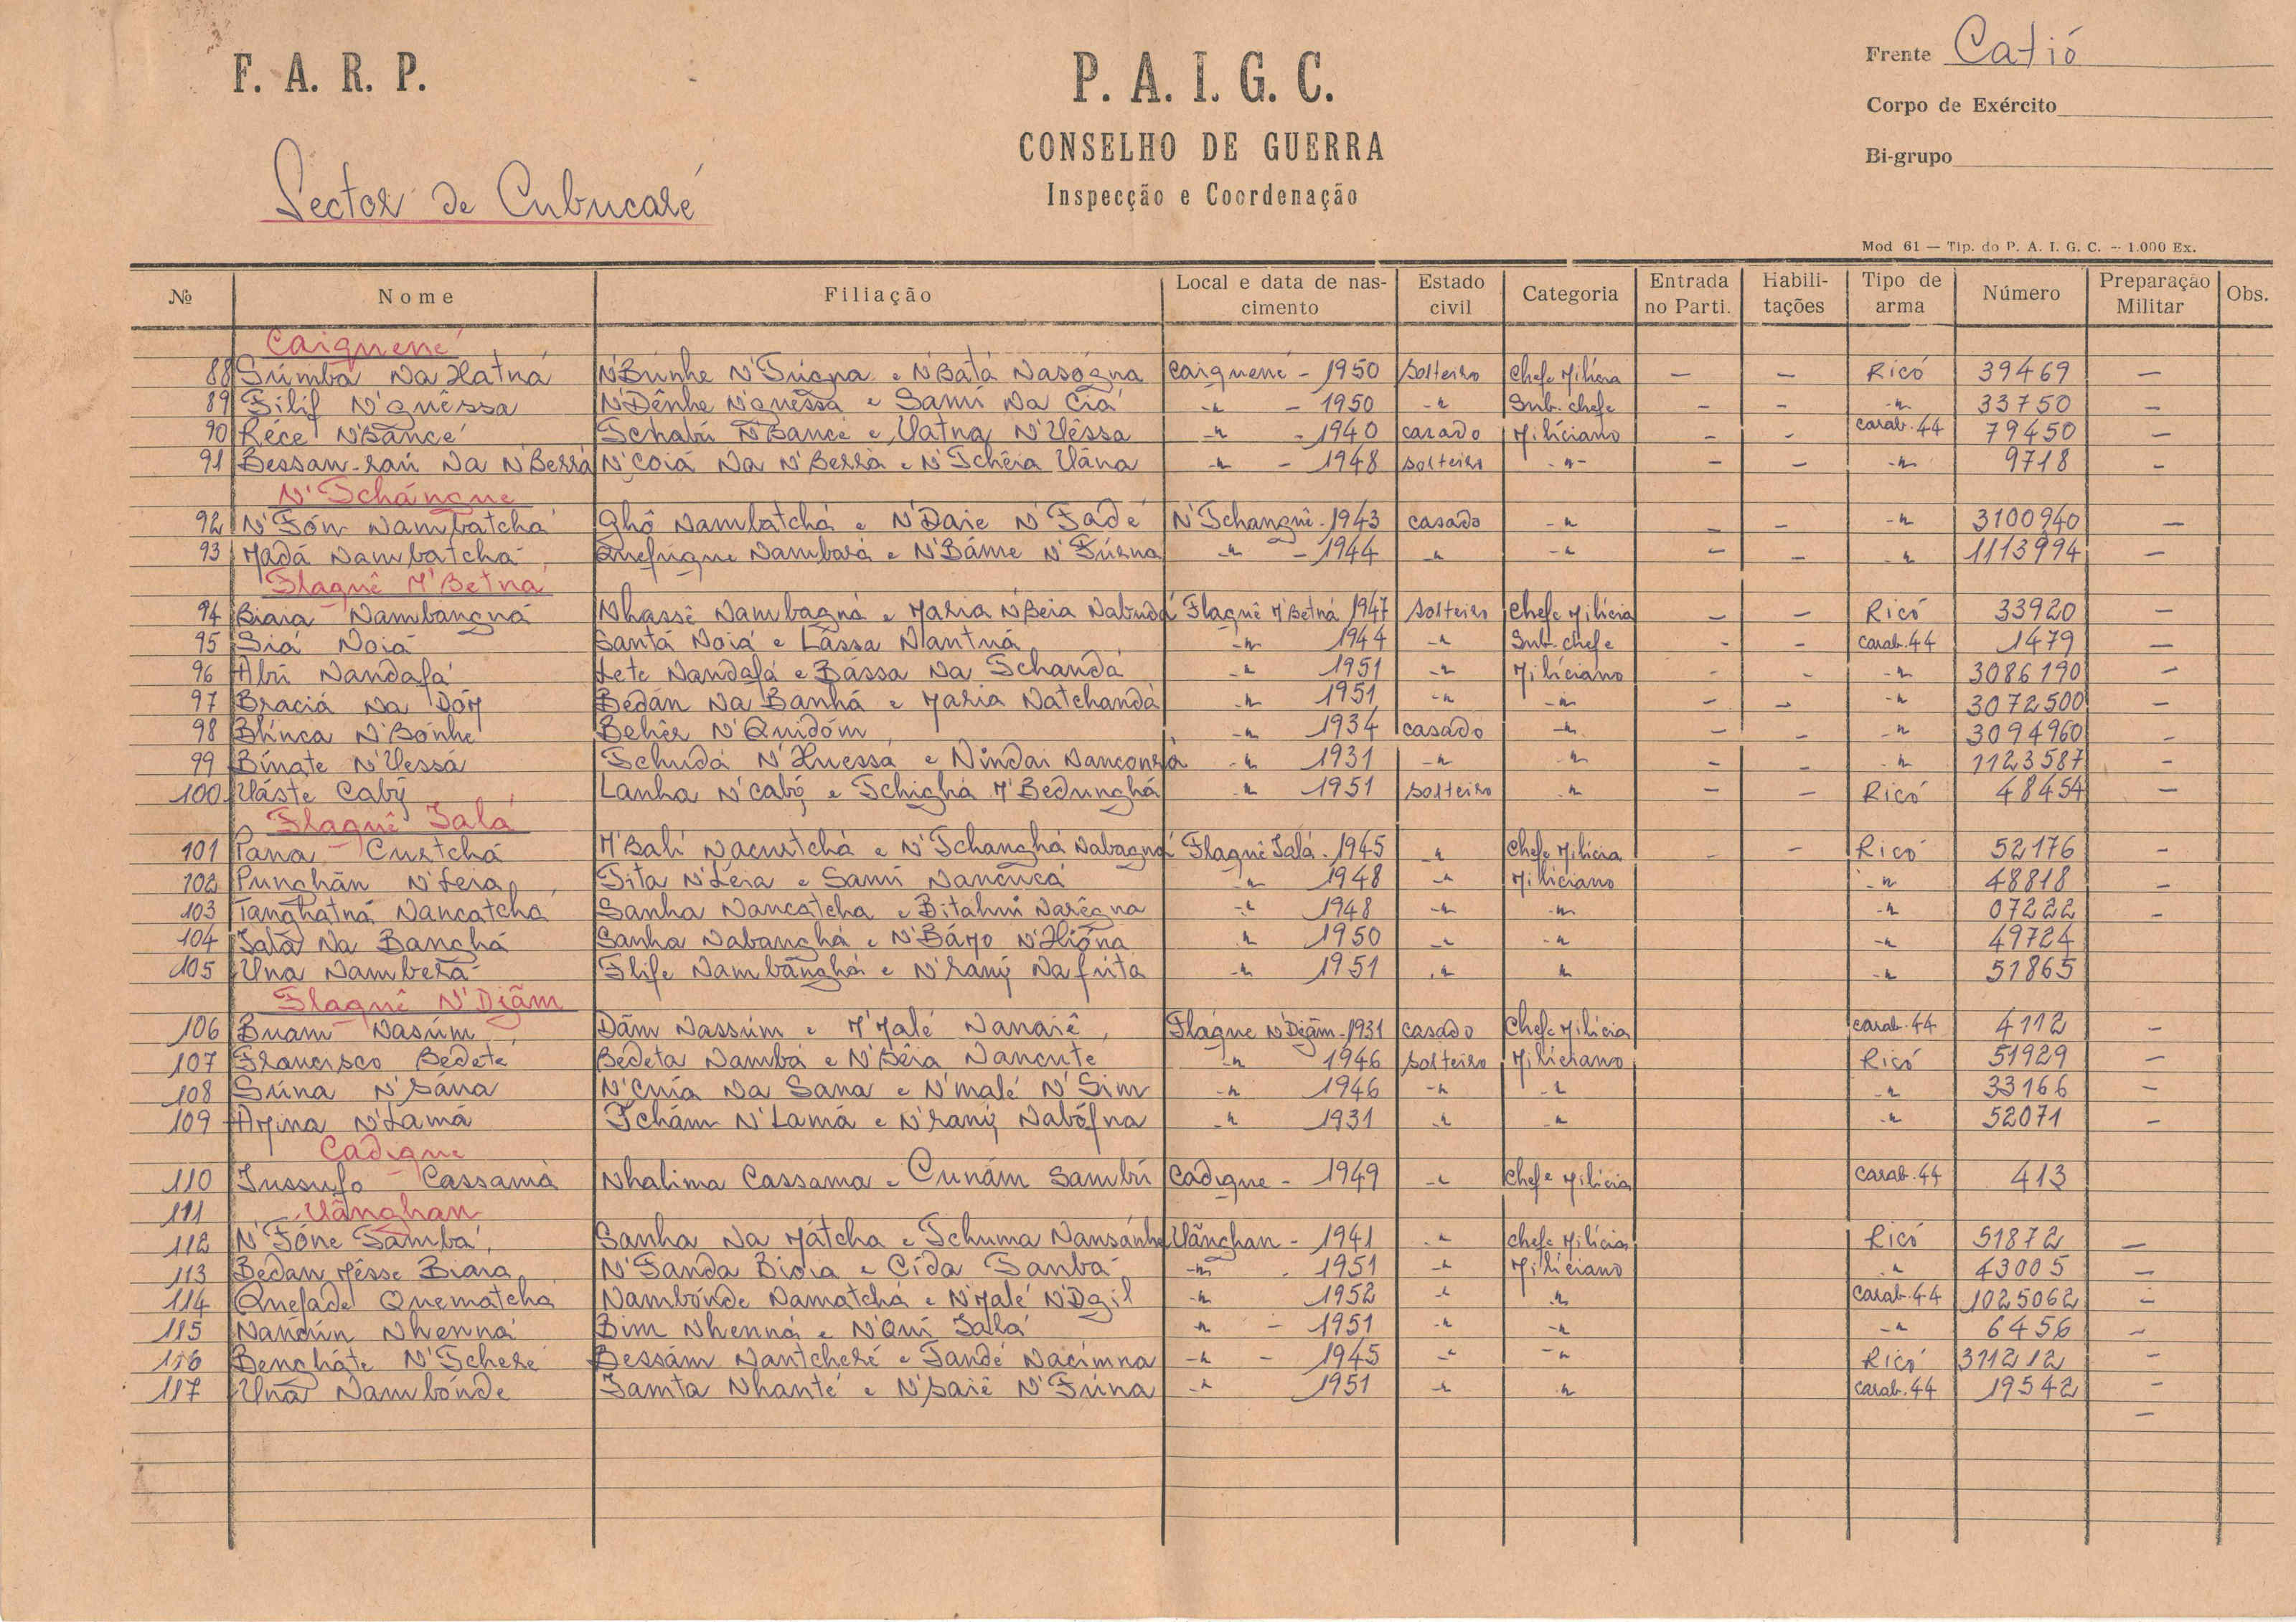 F. A. R. P.
P. A. I. G. C.
CONSELHO DE GUERRA
Inspecção e Coordenação
Frente Catió
Corpo de Exército
Bi-grupo
Sector de Cubucaré
Mod 61 — Tip. do P. A. I. G. C. — 1.000 Ex.
№ Nome Filiação Local e data de nascimento Estado civil Categoria Entrada no Parti. Habilitações Tipo de arma Número Preparação Militar Obs.
Caiquené
88 Súmba Na Hatná N'Búnhe N'Túcna e N'Batá Nasógna Caiquené - 1950 solteiro Chefe Milícia — — Ricó 39469 —
89 Filif N'quêssa N'Dênhe N'quessa e Samí Na Ciá -"- - 1950 -" Sub. chefe - - -"- 33750 —
90 Réce N'Bancé Tchabú N'Bancé e Uatna N'Uêssa -"- - 1940 casado Miliciano - - carab. 44 79450 —
91 Bessan-saú Na N'Berrá N'Coiá Na N'Berrá e N'Tchêia Uána -"- - 1948 solteiro -"- - - -"- 9718 -
N'Tchángue
92 N'Fón Nambatchá Ghô Nambatchá e N'Daie N'Fadé N'Tchangue - 1943 casado -" - - -" 3100940 —
93 Madá Nambatchá Quefúgue Nambará e N'Báme N'Fúrna -" - 1944 -" -" - - -" 1113994 —
Flaquê M'Betná
94 Biaia Nambangná Nhassê Nambagná e Maria N'Beia Nabudá Flaquê M'Betná 1947 solteiro Chefe Milícia - - Ricó 33920 —
95 Siá Noiá Santá Noiá e Lássa Nantná -" 1944 -" Sub. chefe - - carab. 44 1479 —
96 Abú Nandafá Lete Nandafá e Bássa Na Tchandá -" 1951 -" Miliciano - - -" 3086190 -
97 Braciá Na Dóm Bedán Na Banhá e Maria Natchandá -" 1951 -" -" - - -" 3072500 -
98 Blínca N'Bónhe Behêr N'Quidóm -" 1934 casado -" - - -" 3094960 -
99 Bínate N'Uessá Tchudá N'Huessá e Níndai Nanconrá -" 1931 -" -" - - -" 1123587 -
100 Uáste Cabý Lanha N'Cabý e Tchighá M'Bedunghá -" 1951 solteiro -" - - Ricó 48454 —
Flaquê Ialá
101 Pana Custchá M'Balí Nacustchá e N'Tchanghá Nabagná Flaquê Ialá - 1945 -" Chefe Milícia - - Ricó 52176 -
102 Punghán N'Leia Tita N'Leia e Samí Nancucá -" 1948 -" Miliciano -" 48818 -
103 Tanghatná Nancatcha Sanha Nancatcha e Bitahni Narêgna -" 1948 -" -" -" 07222 -
104 Ialá Na Banghá Sanha Nabanghá e N'Bámo N'Hiõna -" 1950 -" -" -" 49724
105 Una Namberá Flife Nambánghá e N'raný Nafuta -" 1951 -" -" -" 51865
Flaquê N'Djãm
106 Buam Nasúm Dãm Nassúm e M'Malé Nanaiê Flaque N'Djãm - 1931 casado Chefe Milícia carab. 44 4112 -
107 Francisco Bedeté Bedeta Nambá e N'Bêia Nancute -" 1946 solteiro Miliciano Ricó 51929 —
108 Súna N'Sána N'Cuía Na Sana e N'malé N'Sim -" 1946 -" -" -" 33166 -
109 Amina N'Lamá Tchám N'Lamá e N'raný Nabófna -" 1931 -" -" -" 52071 -
Cadique
110 Jussufo Cassamá Nhalima Cassama e Cunám Sambú Cadique - 1949 -" Chefe Milícia carab. 44 413
111 Uãnghan
112 N'Fóne Sambá Sanha Na Mátcha e Tchuma Nansánha Uãnghan - 1941 -" Chefe Milícia Ricó 51872 —
113 Bedan Mésse Biaia N'Fanda Bioia e Cída Sanba -" - 1951 -" Miliciano " 43005 —
114 Quefade Quematcha Nambónde Namatchá e N'Malé N'Dgil -" 1952 -" -" Carab. 44 1025062 -
115 Nandún Nhenná Bim Nhenná e N'Quí Ialá -" - 1951 -" -" -" 6456 —
116 Bengháte N'Tcheré Bessám Nantcheré e Tandé Nacímna -" - 1945 -" -" Ricó 311212 -
117 Uná Nambónde Samta Nhanté e N'saiê N'Fúna -" 1951 -" -" carab. 44 19542 -
—